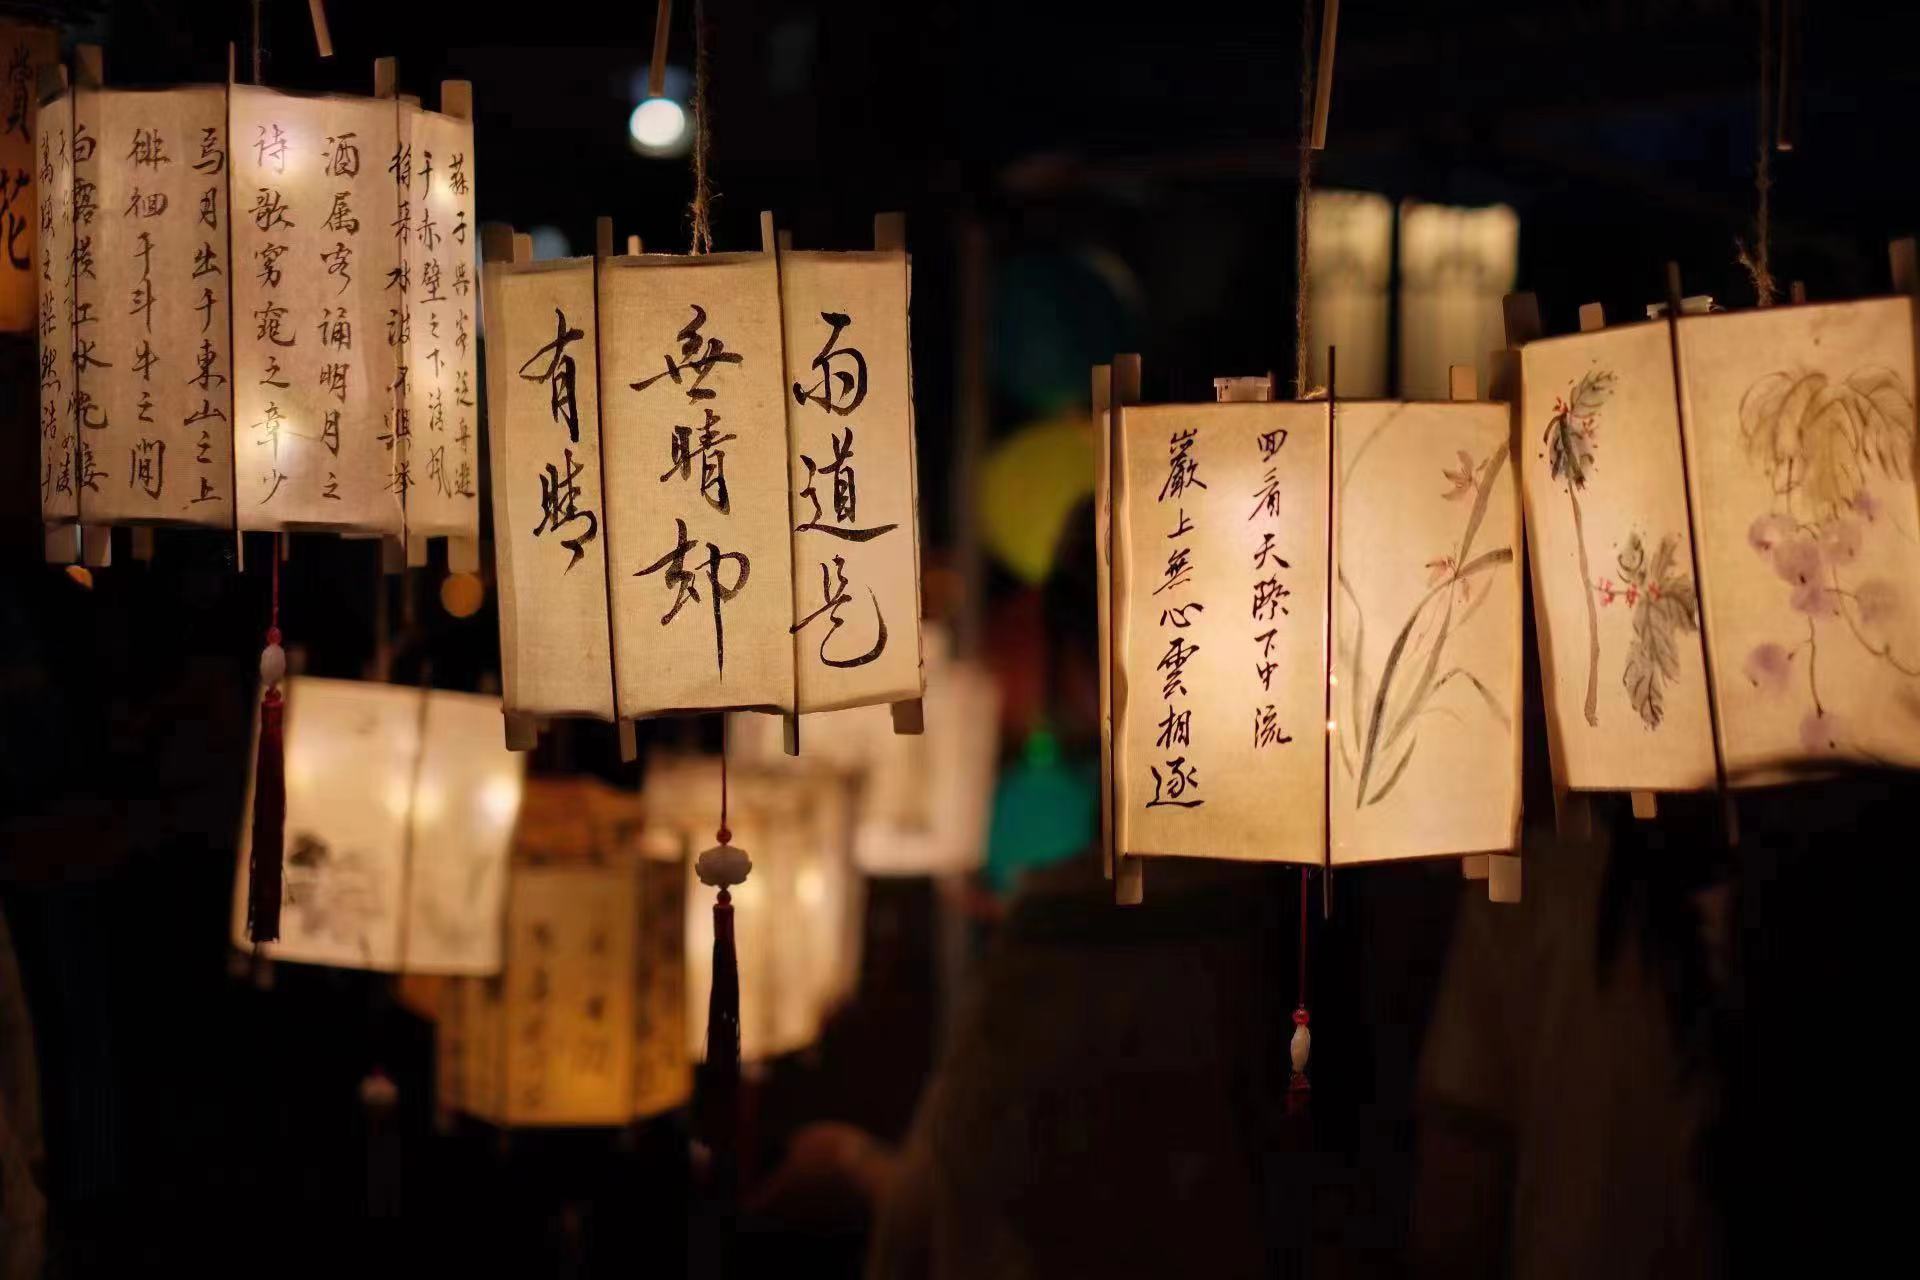 賞花
蘇子與客泛舟遊
于赤壁之下清風
徐来水波不興舉
酒属客誦明月之
詩歌窈窕之章少
焉月出于東山之上
徘徊于斗牛之間
白露横江水光接
萬頃之茫然浩乎
雨道是
無晴却
有晴
回看天際下中流
巖上無心雲相逐